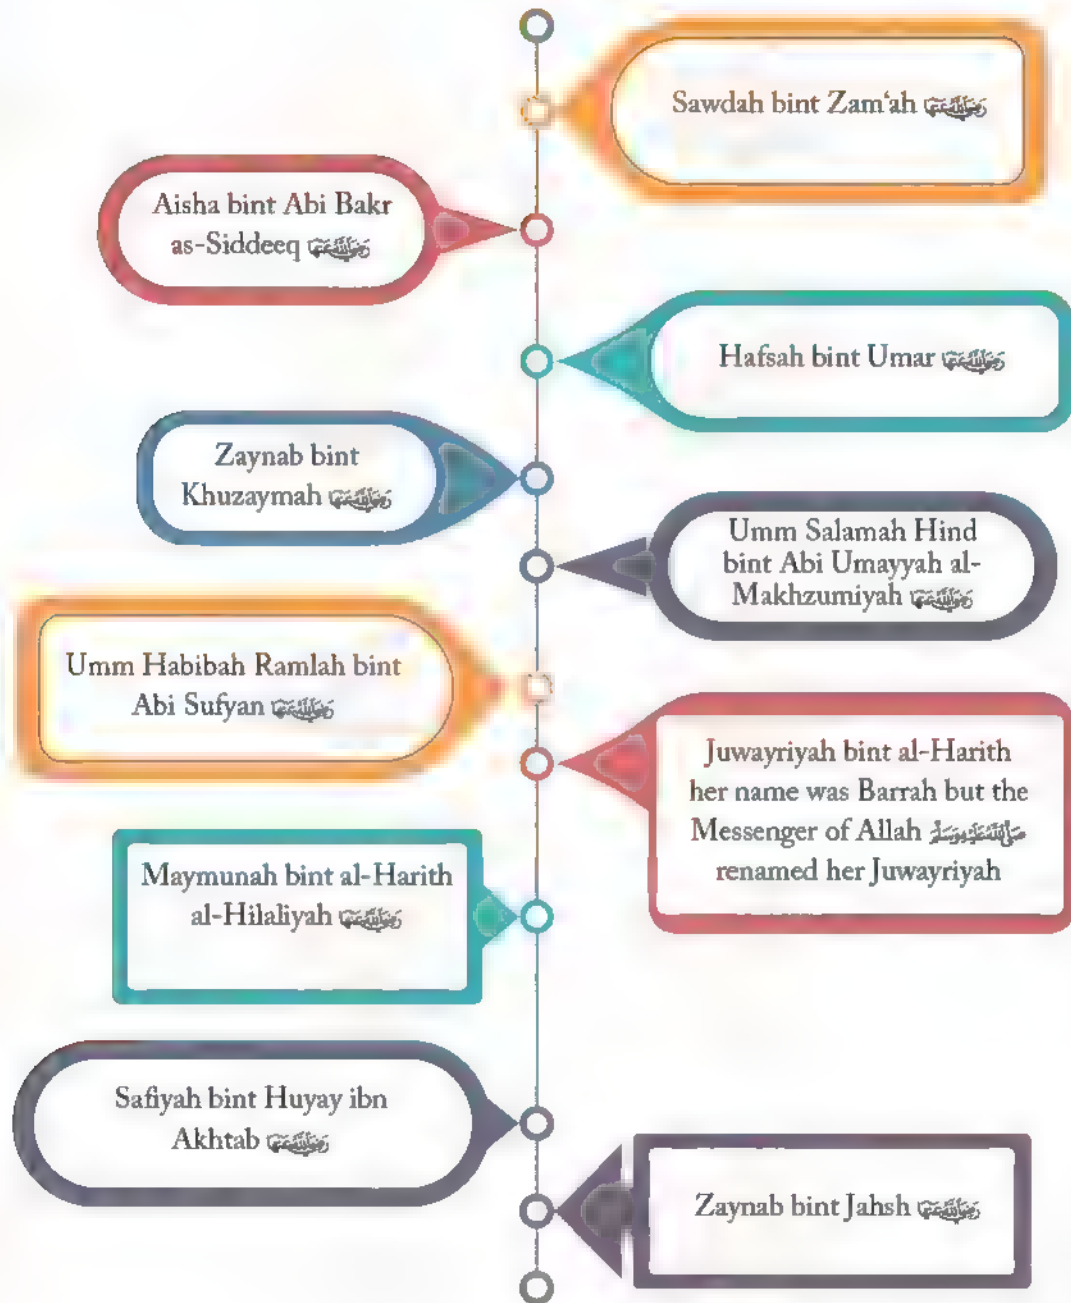 Sawdah bint Zam‘ah رضي الله عنها
Aisha bint Abi Bakr
as-Siddeeq رضي الله عنها
Hafsah bint Umar رضي الله عنها
Zaynab bint
Khuzaymah رضي الله عنها
Umm Salamah Hind
bint Abi Umayyah al-
Makhzumiyah رضي الله عنها
Umm Habibah Ramlah bint
Abi Sufyan رضي الله عنها
Juwayriyah bint al-Harith
her name was Barrah but the
Messenger of Allah صلى الله عليه وسلم
renamed her Juwayriyah
Maymunah bint al-Harith
al-Hilaliyah رضي الله عنها
Safiyah bint Huyay ibn
Akhtab رضي الله عنها
Zaynab bint Jahsh رضي الله عنها